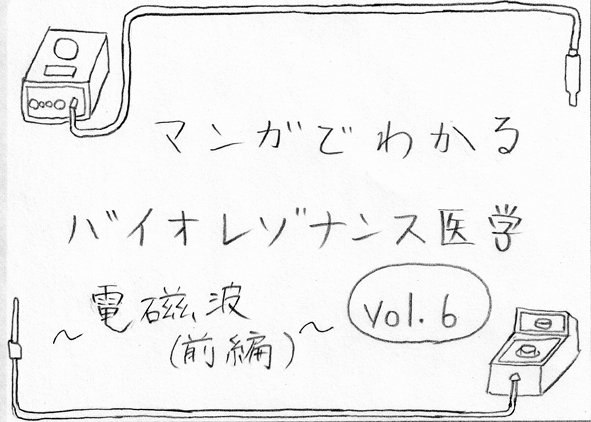 マンガでわかる
バイオレゾナンス医学
～電磁波～
(前編)
Vol.6